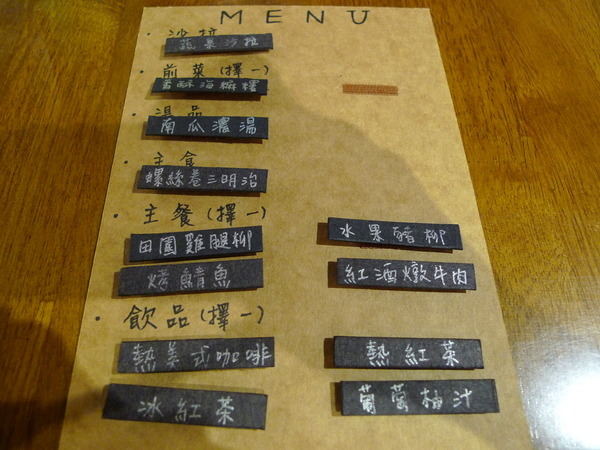 MENU
沙拉
蔬果沙拉
前菜(擇一)
香酥海蜘蟶
湯品
南瓜濃湯
主食
螺絲卷三明治
主餐(擇一)
田園雞腿柳 水果豬柳
烤鯖魚 紅酒燉牛肉
飲品(擇一)
熱美式咖啡 熱紅菜
冰紅茶 葡萄柚汁